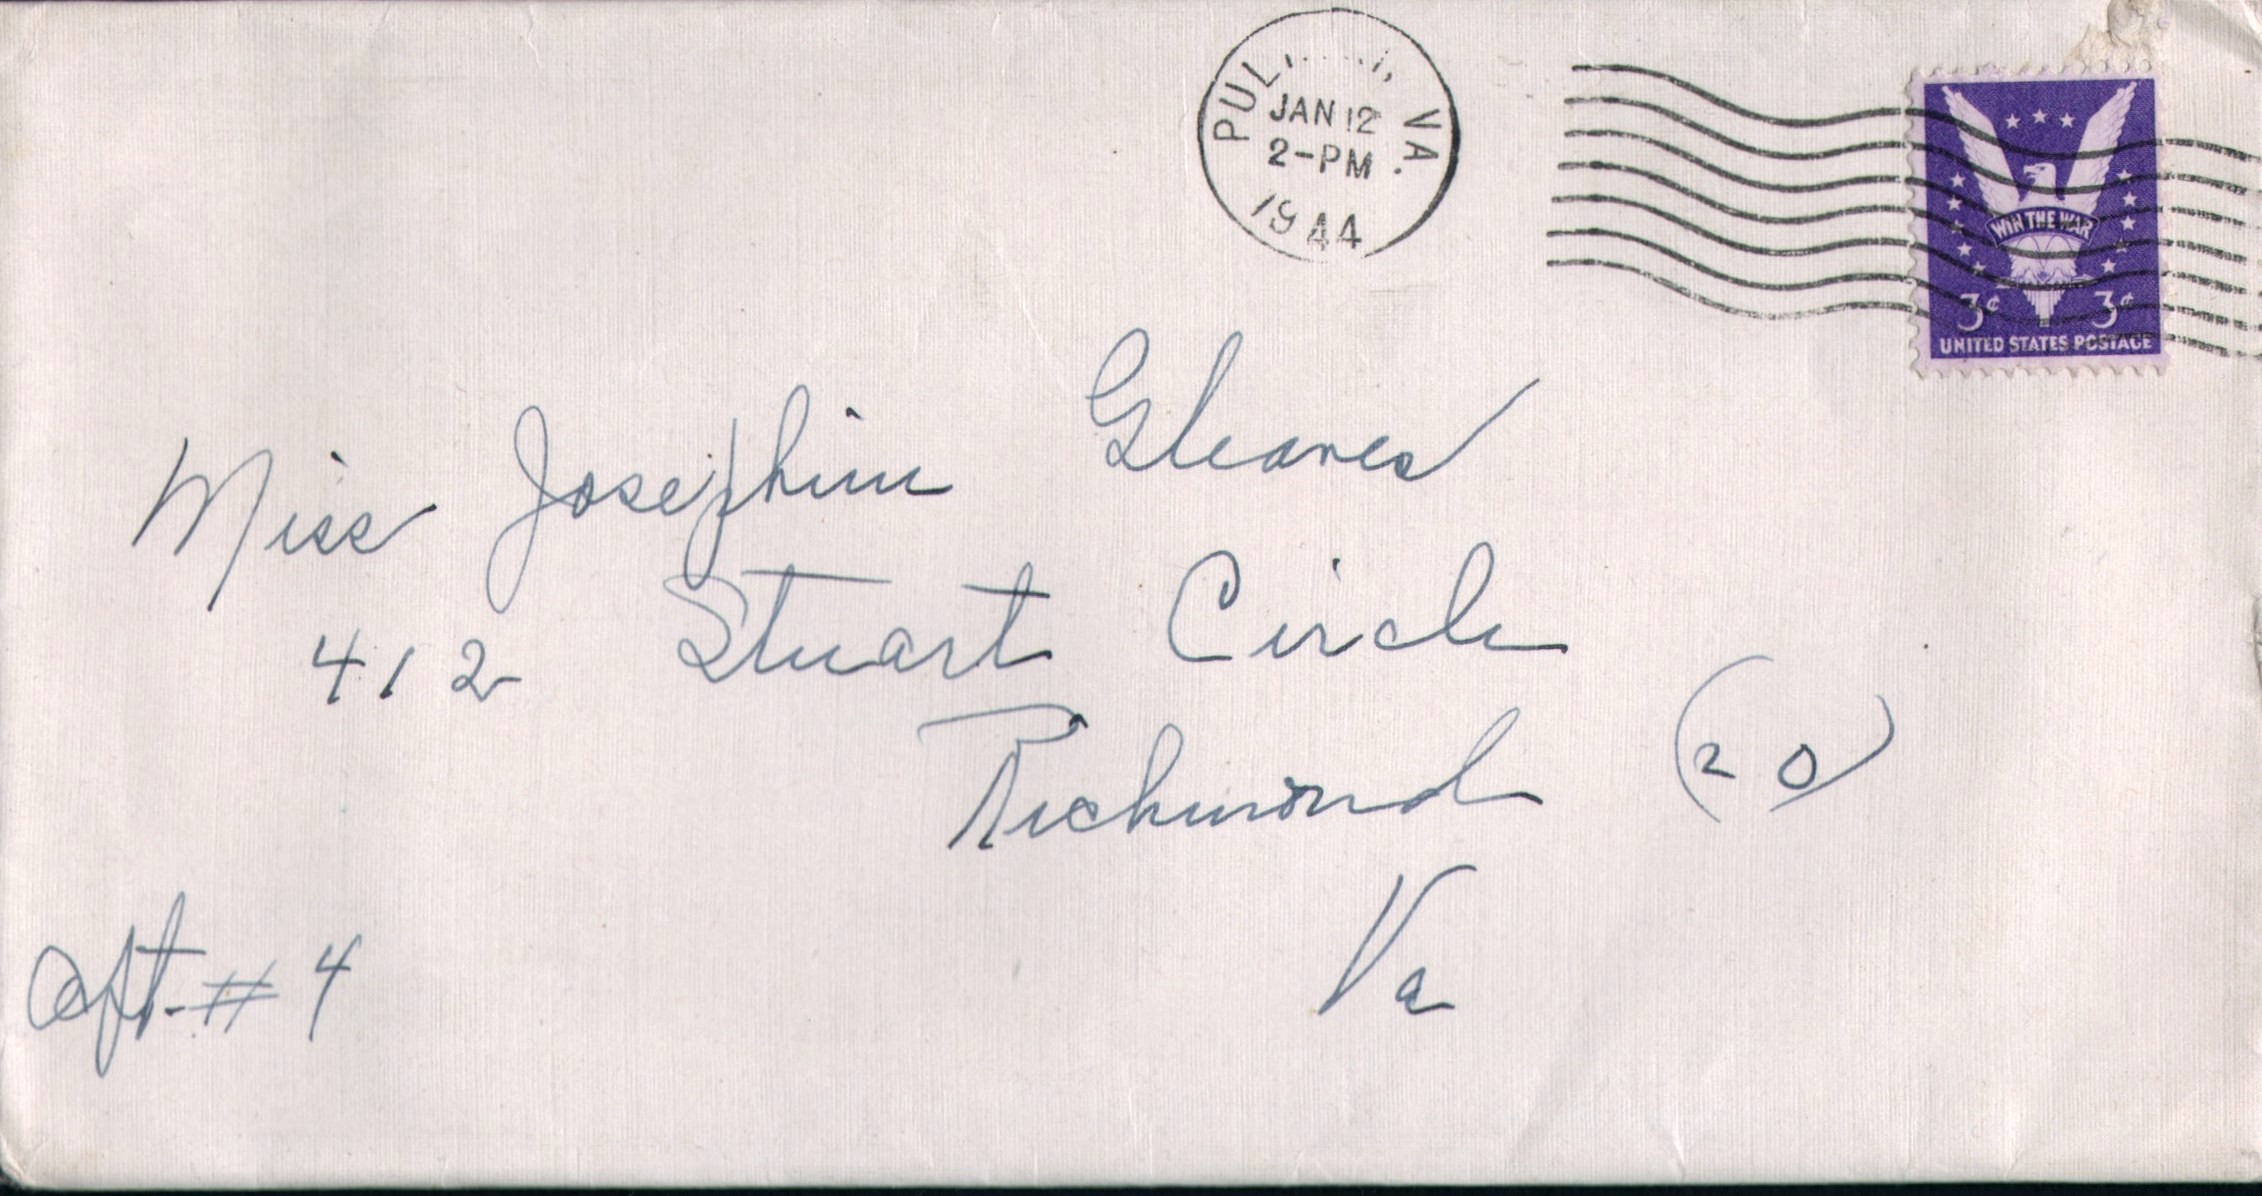 PUL VA.
JAN 12
2-PM
1944
WIN THE WAR
3¢ 3¢
UNITED STATES POSTAGE
Miss Josephine Gleaves
412 Stuart Circle
Richmond (20)
Va
Apt. # 4